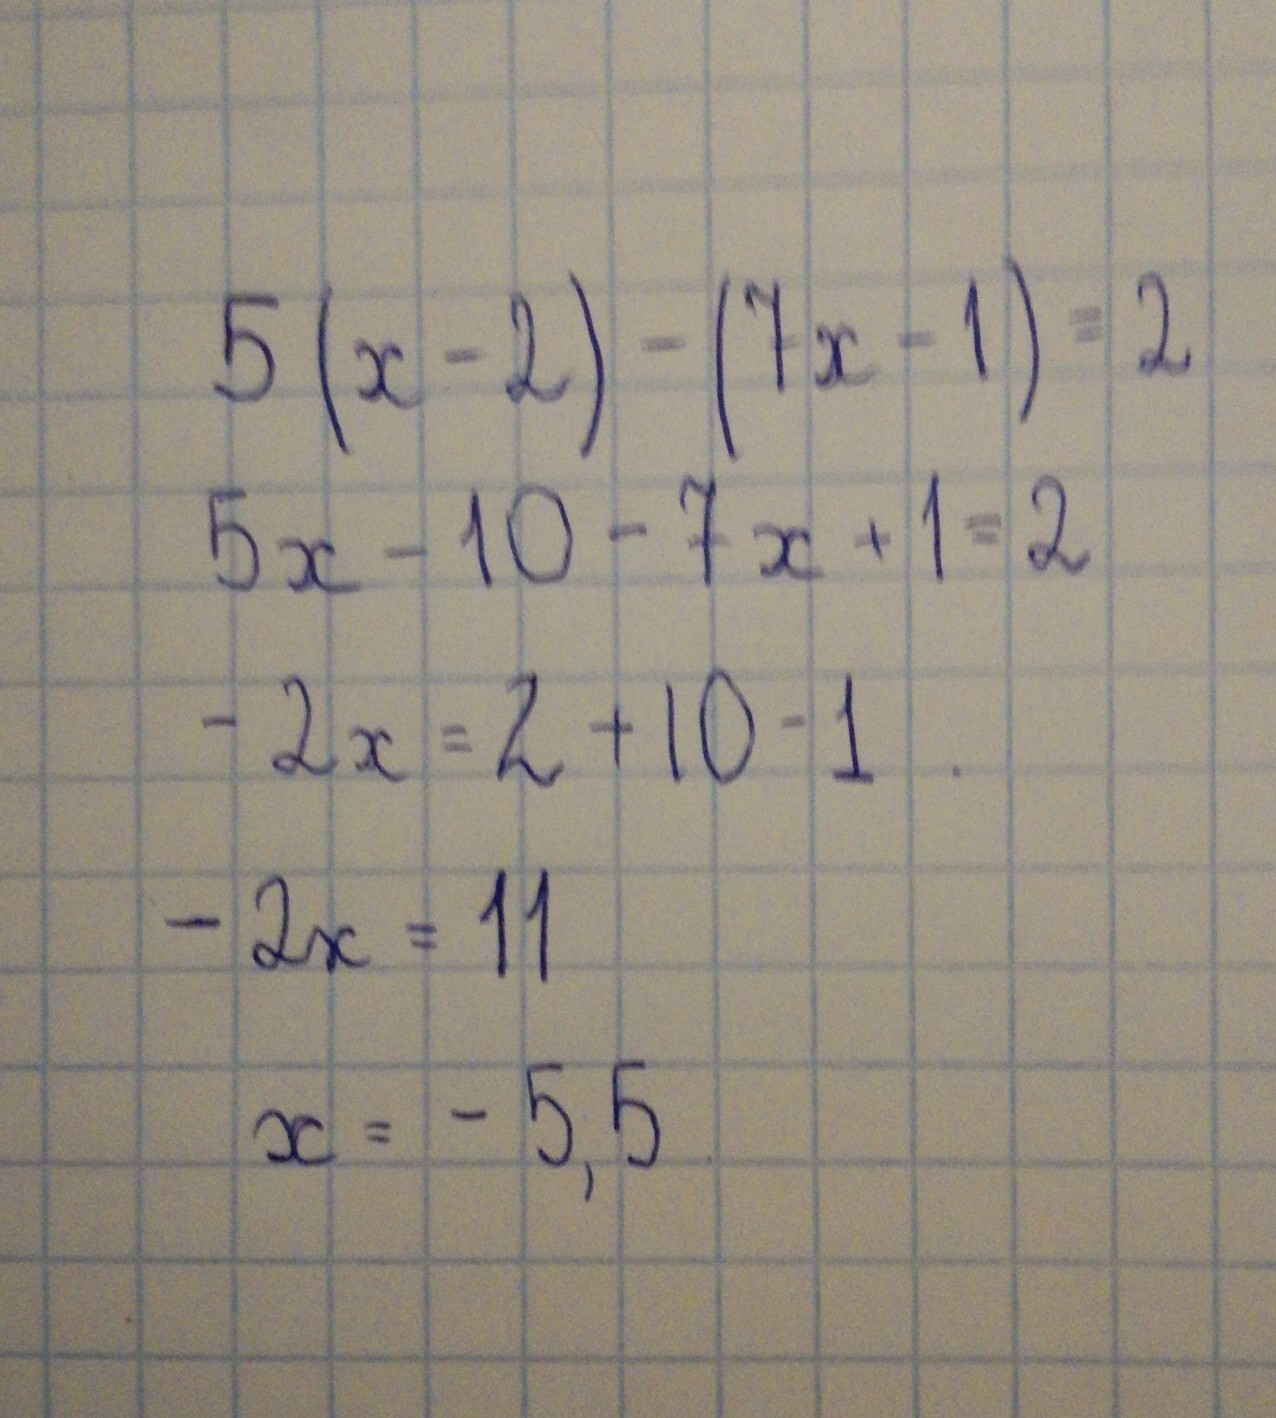 5(x-2)-(7x-1)=2
5x-10-7x+1=2
-2x=2+10-1
-2x=11
x=-5,5